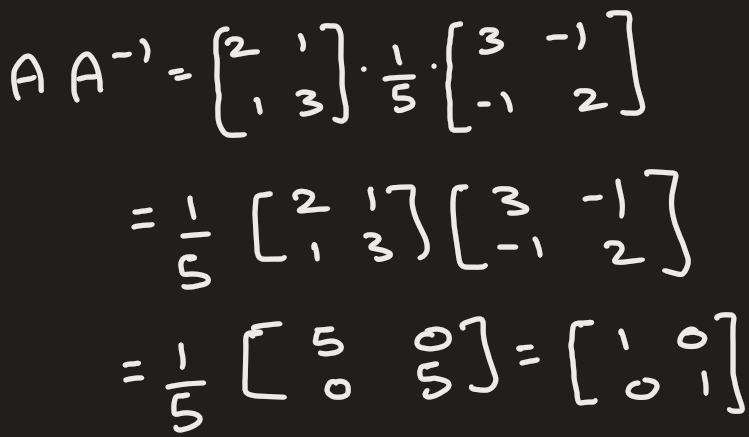 A A⁻¹ = [2 1; 1 3] · 1/5 · [3 -1; -1 2]
= 1/5 [2 1; 1 3] [3 -1; -1 2]
= 1/5 [5 0; 0 5] = [1 0; 0 1]